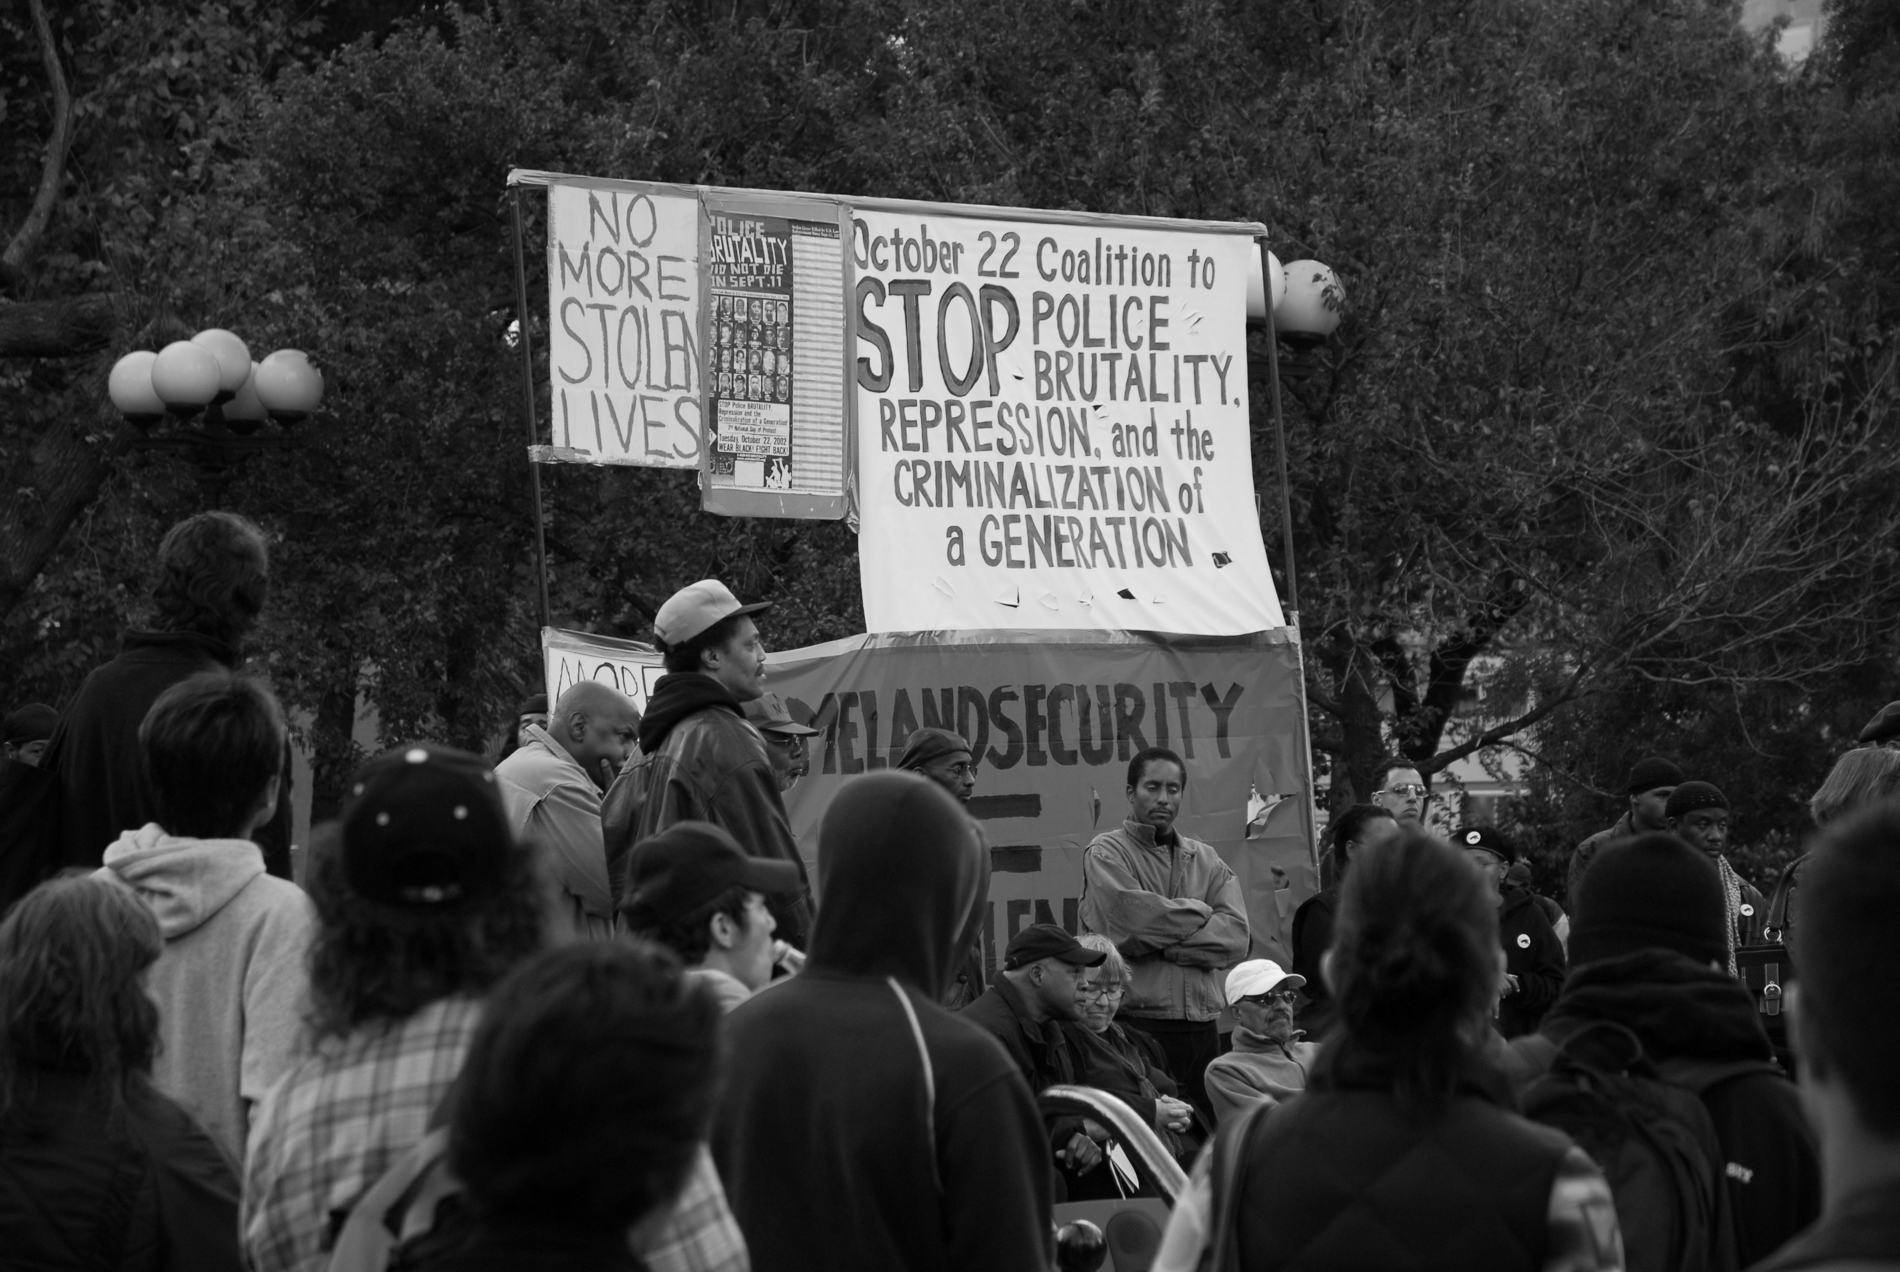 NO
MORE
STOLEN
LIVES
POLICE
BRUTALITY
DID NOT DIE
ON SEPT.11
STOP Police BRUTALITY,
Repression and the
Criminalization of a Generation!
7th National Day of Protest
Tuesday, October 22, 2002
WEAR BLACK! FIGHT BACK!
October 22 Coalition to
STOP POLICE
BRUTALITY,
REPRESSION, and the
CRIMINALIZATION of
a GENERATION
MORE
MELANDSECURITY
=
LEN